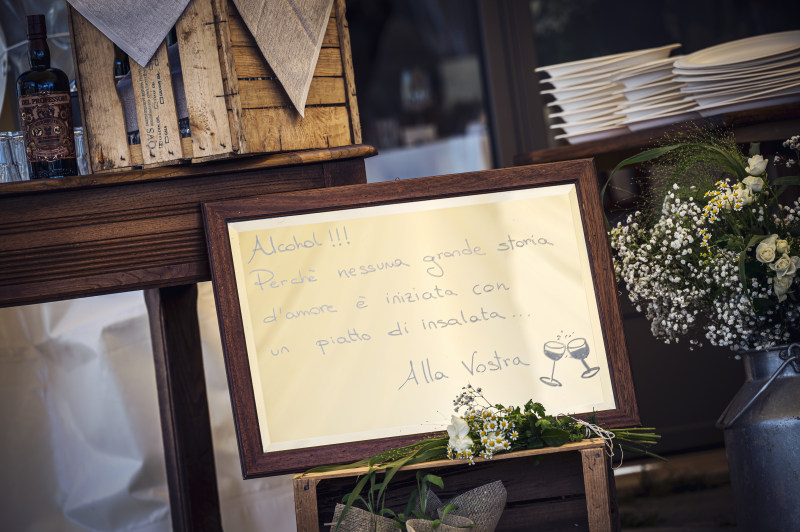 Alcohol!!!
Perchè nessuna grande storia
d'amore è iniziata con
un piatto di insalata...
Alla Vostra